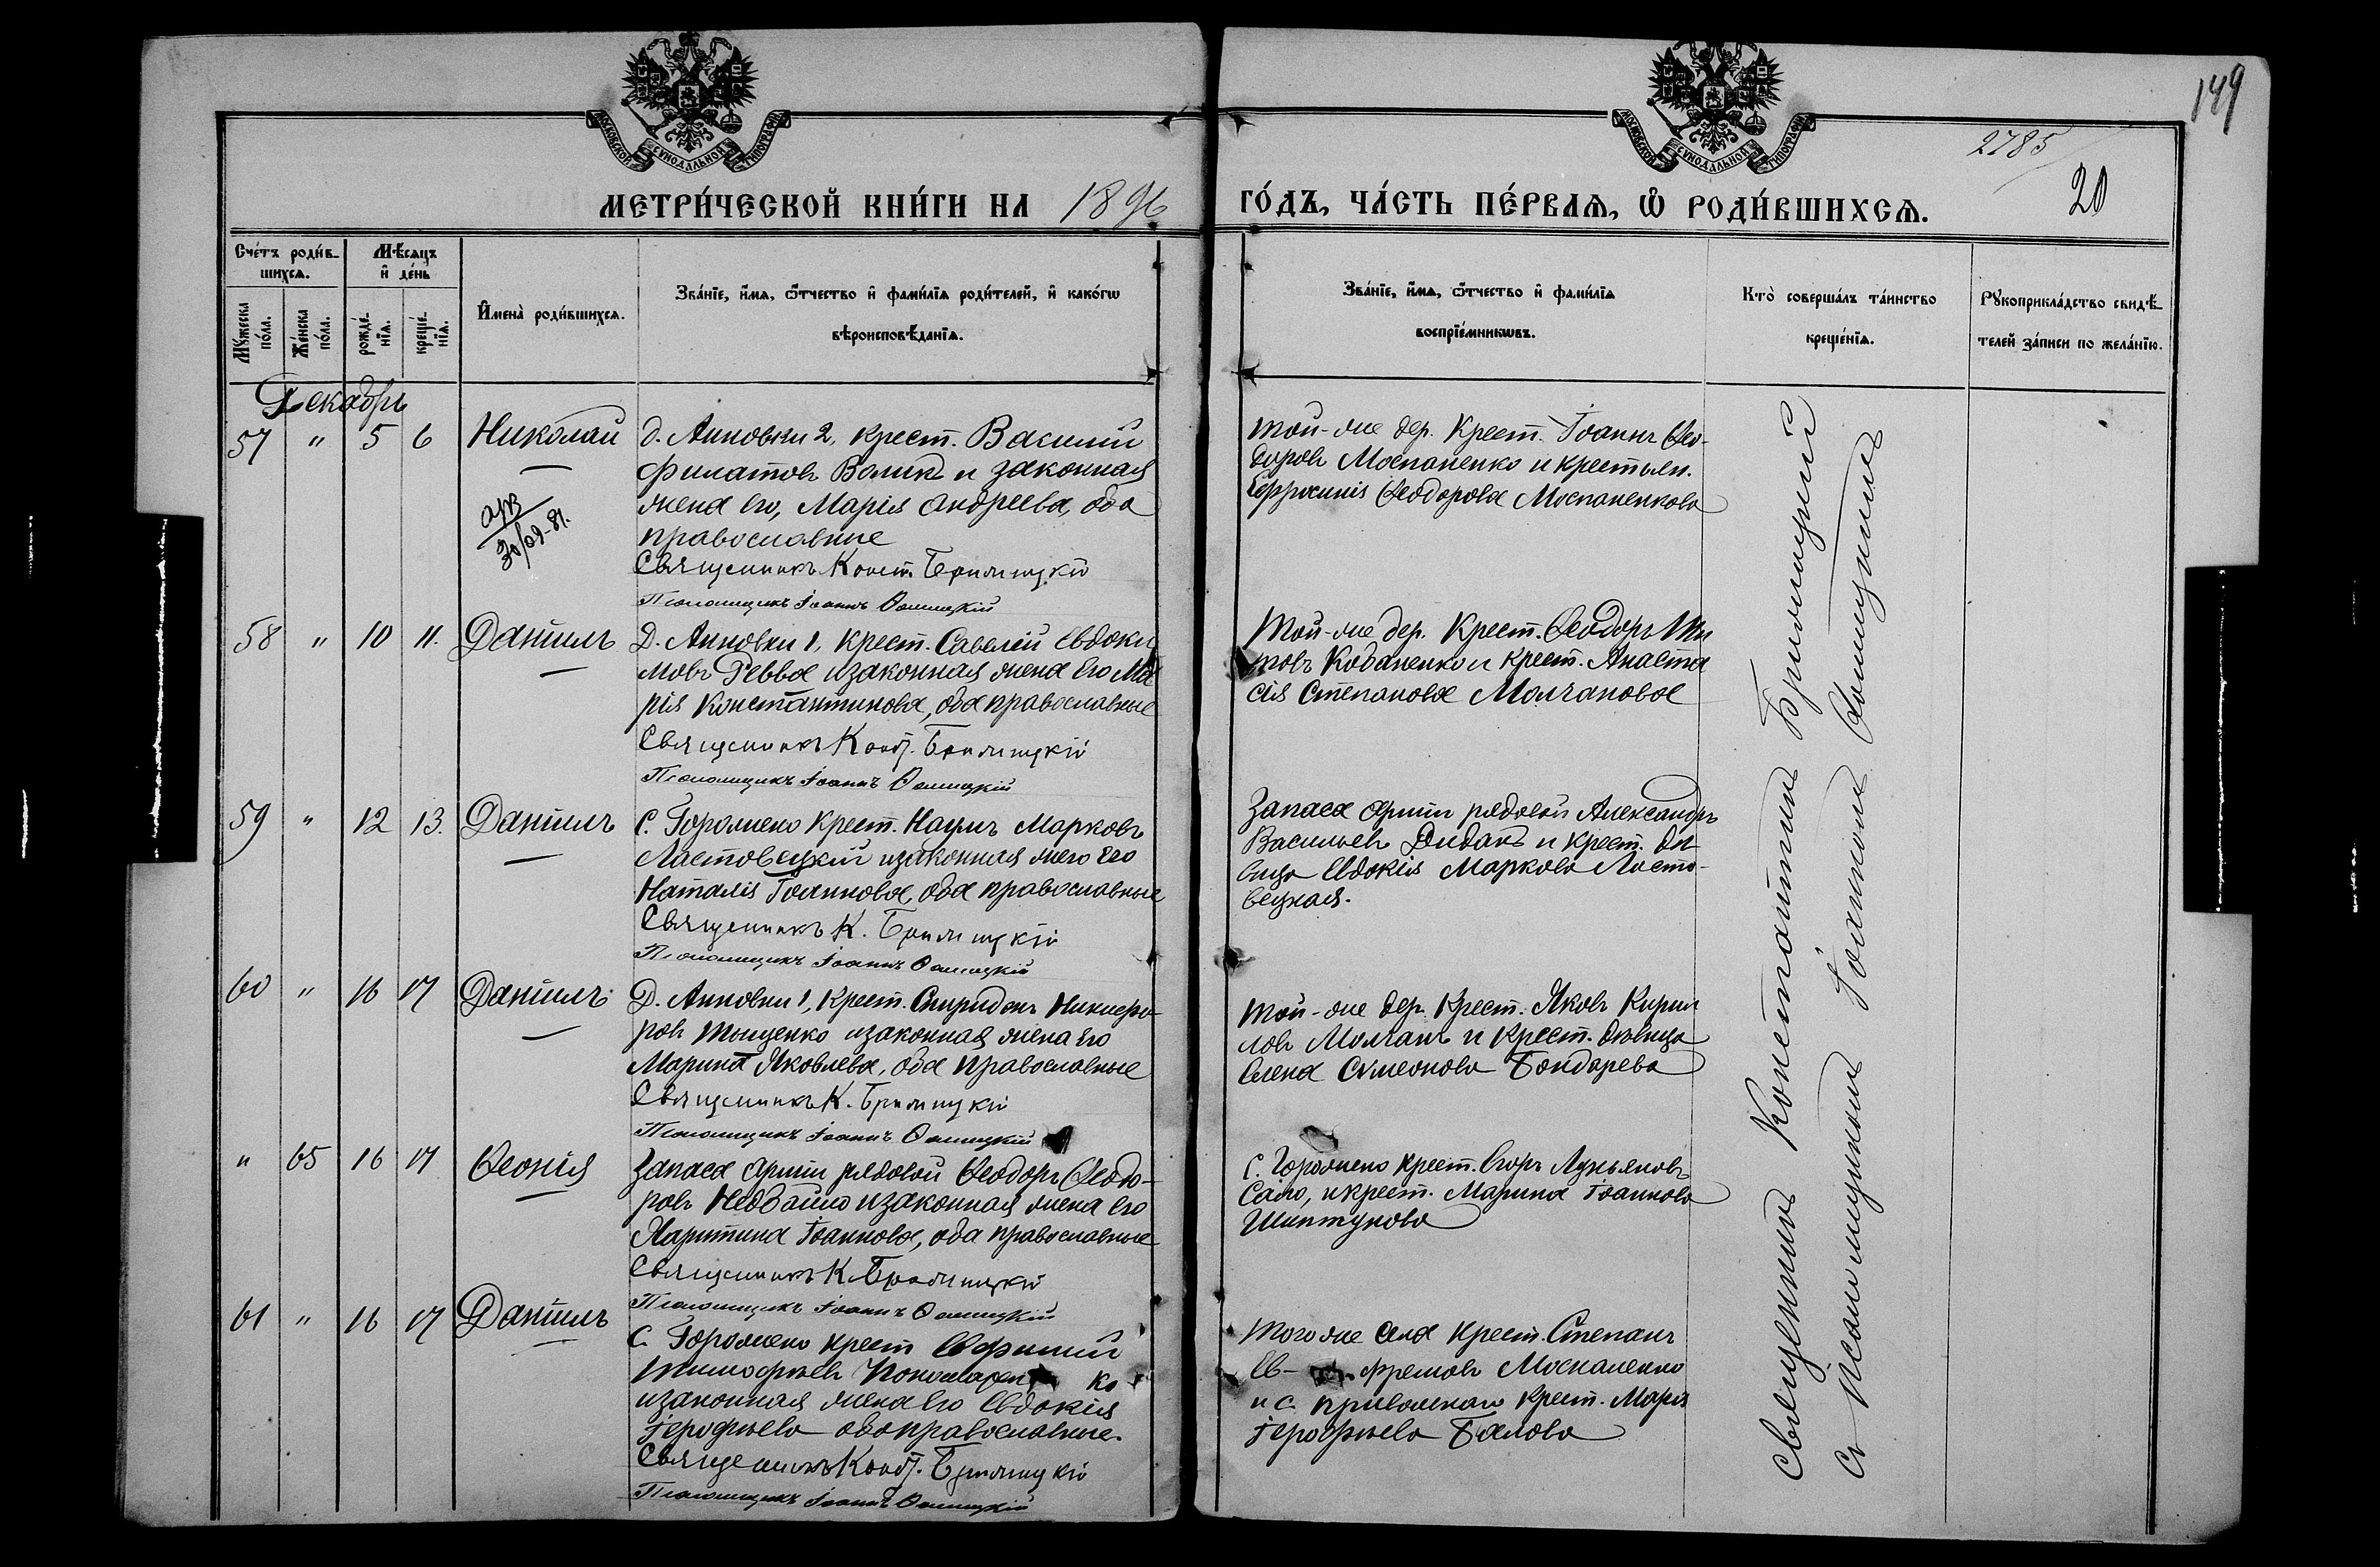 149
МОСКОВСКОЙ СѴНОДАЛЬНОЙ ТИПОГРАФІИ
МОСКОВСКОЙ СѴНОДАЛЬНОЙ ТИПОГРАФІИ
2785
20
МЕТРИ́ЧЕСКОЙ КНИ́ГИ НА 1896
ГО́ДЪ, ЧА́СТЬ ПЕ́РВАѦ, Ѡ҆ РОДИ́ВШИХСѦ.
Сче́тъ роди́в-
шихсѧ.
Мѣ́сѧцъ
и҆ де́нь
Мꙋ́жеска
по́ла.
Же́нска
по́ла.
рожде́-
нїѧ.
креще́-
нїѧ.
И҆мена̀ роди́вшихсѧ.
Зва́нїе, и҆́мѧ, ѻ҆́тчество и҆ фами́лїѧ роди́телей, и҆ како́гѡ
вѣроисповѣ́данїѧ.
Зва́нїе, и҆́мѧ, ѻ҆́тчество и҆ фами́лїѧ
воспрїе́мникѡвъ.
Кто̀ соверша́лъ та́инство
креще́нїѧ.
Рꙋкоприкла́дство свидѣ́-
телей за́писи по жела́нїю.
Декабрь
57 " 5 6 Николай
д. Анновки 2, крест. Василий
Филатовъ Воликъ и законная
жена его, Марія Андреева, оба
православные
Священникъ Конст. Брилицкій
Псаломщикъ Іоаннъ
30/09-81.
той-же дер. крест. Іоаннъ Ѳео-
доровъ Моспаненко и крестьян.
Евфросинія Ѳеодорова Моспаненкова
58 " 10 11. Даніилъ
Д. Анновки 1, крест. Савелій Евдоки
мовъ Ревва и законная жена его Ма
рія Константинова, оба православные
Священникъ Конст. Брилицкій
Псаломщикъ Іоаннъ
Той-же дер. крест. Ѳеодоръ Ти
товъ Кобаненко и крест. Анаста
сія Степанова Молчанова
59 " 12 13. Даніилъ
С. Горожено крест. Наумъ Марковъ
Ластовецкій и законная его
Наталія Іоаннова, оба православные
Священникъ К. Брилицкій
Псаломщикъ Іоаннъ
Запаса арміи рядовой Александръ
Васильевъ Дибакъ и крест. дѣ-
вица Евдокія Маркова Ласто-
вецкая.
60 " 16 17 Даніилъ
Д. Анновки 1, крест. Спиридонъ Никифо-
ровъ Тыщенко и законная жена его
Марина Яковлева, оба православные
Священникъ К. Брилицкій
Псаломщикъ Іоаннъ
той-же дер. крест. Яковъ Кирил
ловъ Молчанъ и крест. дѣвица
Елена Симеонова Бондарева
" 65 16 17 Ѳеонія
Запаса арміи рядовой Ѳеодоръ Ѳеодо-
ровъ Недбайло и законная жена его
Харитина Іоаннова, оба православные
Священникъ К. Брилицкій
Псаломщикъ Іоаннъ
С. Горожено крест. Егоръ Лукьяновъ
Сало, и крест. Марина Іоаннова
61 " 16 17 Даніилъ
С. Горожено крест Евфимій
Тимофѣевъ Пономарен ко
и законная жена его Евдокія
Герофѣева оба православные.
Священникъ Конст. Брилицкій
Псаломщикъ Іоаннъ
того же села крест. Степанъ
Ев- фремовъ Моспаненко
и с. Привольнаго крест. Марія
Герофѣева Балова
Священникъ Константинъ Брилицкій
съ псаломщикомъ Іоанномъ